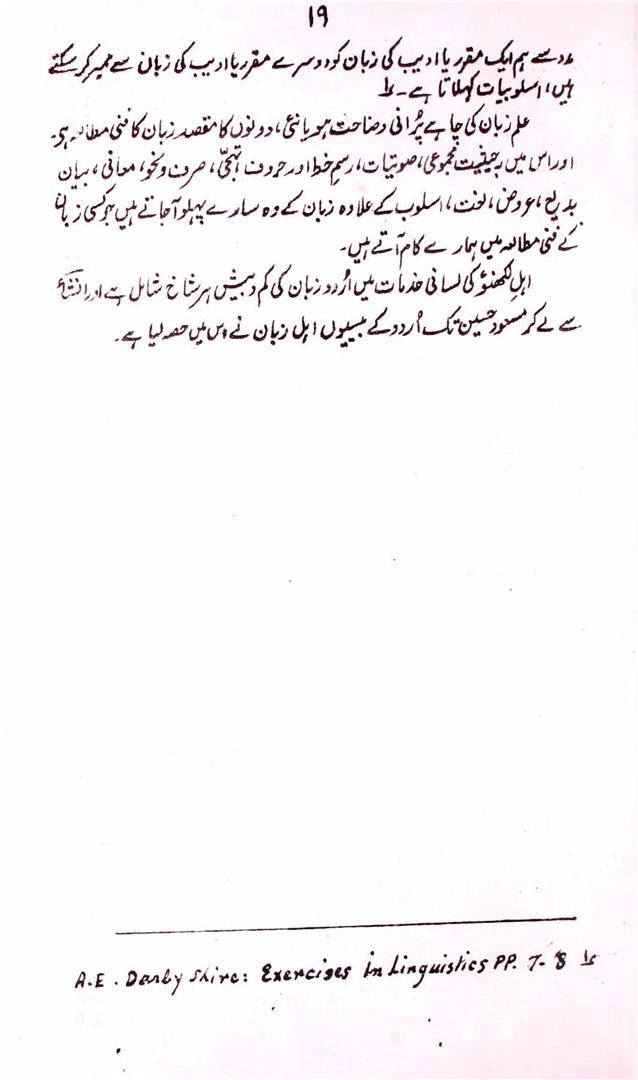 ۱۹
مدد سے ہم ایک مقرر یا ادیب کی زبان کو دوسرے مقرر یا ادیب کی زبان سے ممیز کر سکتے
ہیں، اسلوبیات کہلاتا ہے۔ ؎۱
علم زبان کی چاہے پُرانی وضاحت ہو یا نئی، دونوں کا مقصد زبان کا فنی مطالعہ ہی۔
اور اس میں بہ حیثیت مجموعی، صوتیات، رسم خط اور حروف تہجّی، صرف و نحو، معانی، بیان
بدیع، عروض، لغت، اسلوب کے علاوہ زبان کے وہ سارے پہلو آجاتے ہیں جو کسی زبان
کے فنی مطالعہ میں ہمارے کام آتے ہیں۔
اہلِ لکھنؤ کی لسانی خدمات میں اُردو زبان کی کم و بیش ہر شاخ شامل ہے اور انشاؔء
سے لے کر مسعود حسین تک اُردو کے بیسیوں اہل زبان نے اس میں حصہ لیا ہے۔
A.E. Darbyshire: Exercises in Linguistics PP. 7-8 ؎۱